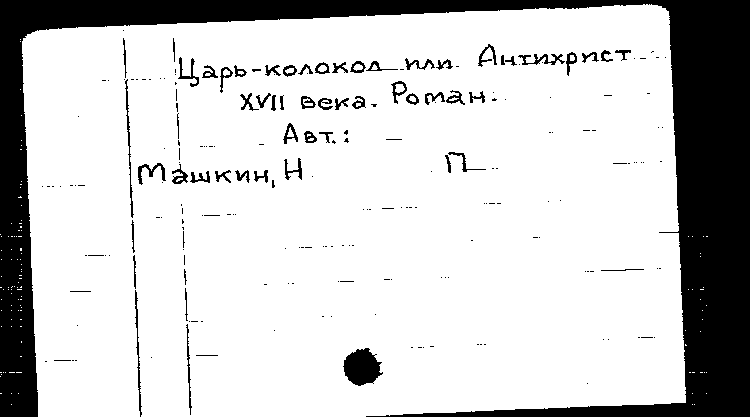 Царь-колокол или Антихрист
XVII века. Роман.
Авт.:
Машкин, Н П